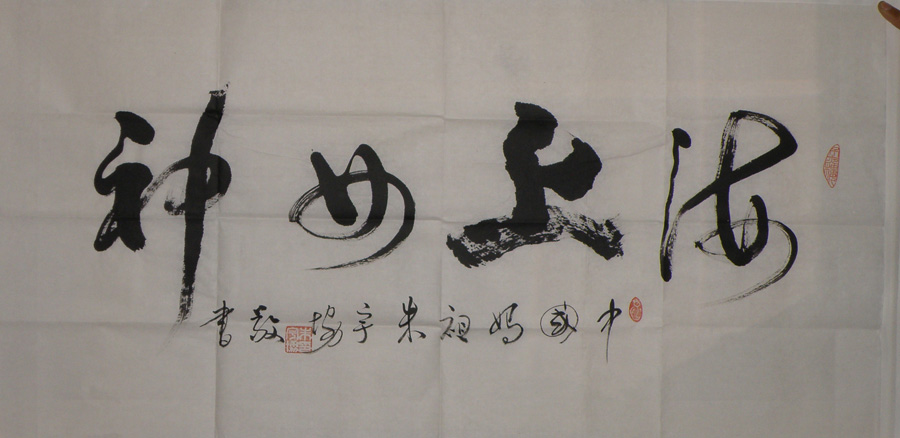 海上女神
中國媽祖朱宇敬書